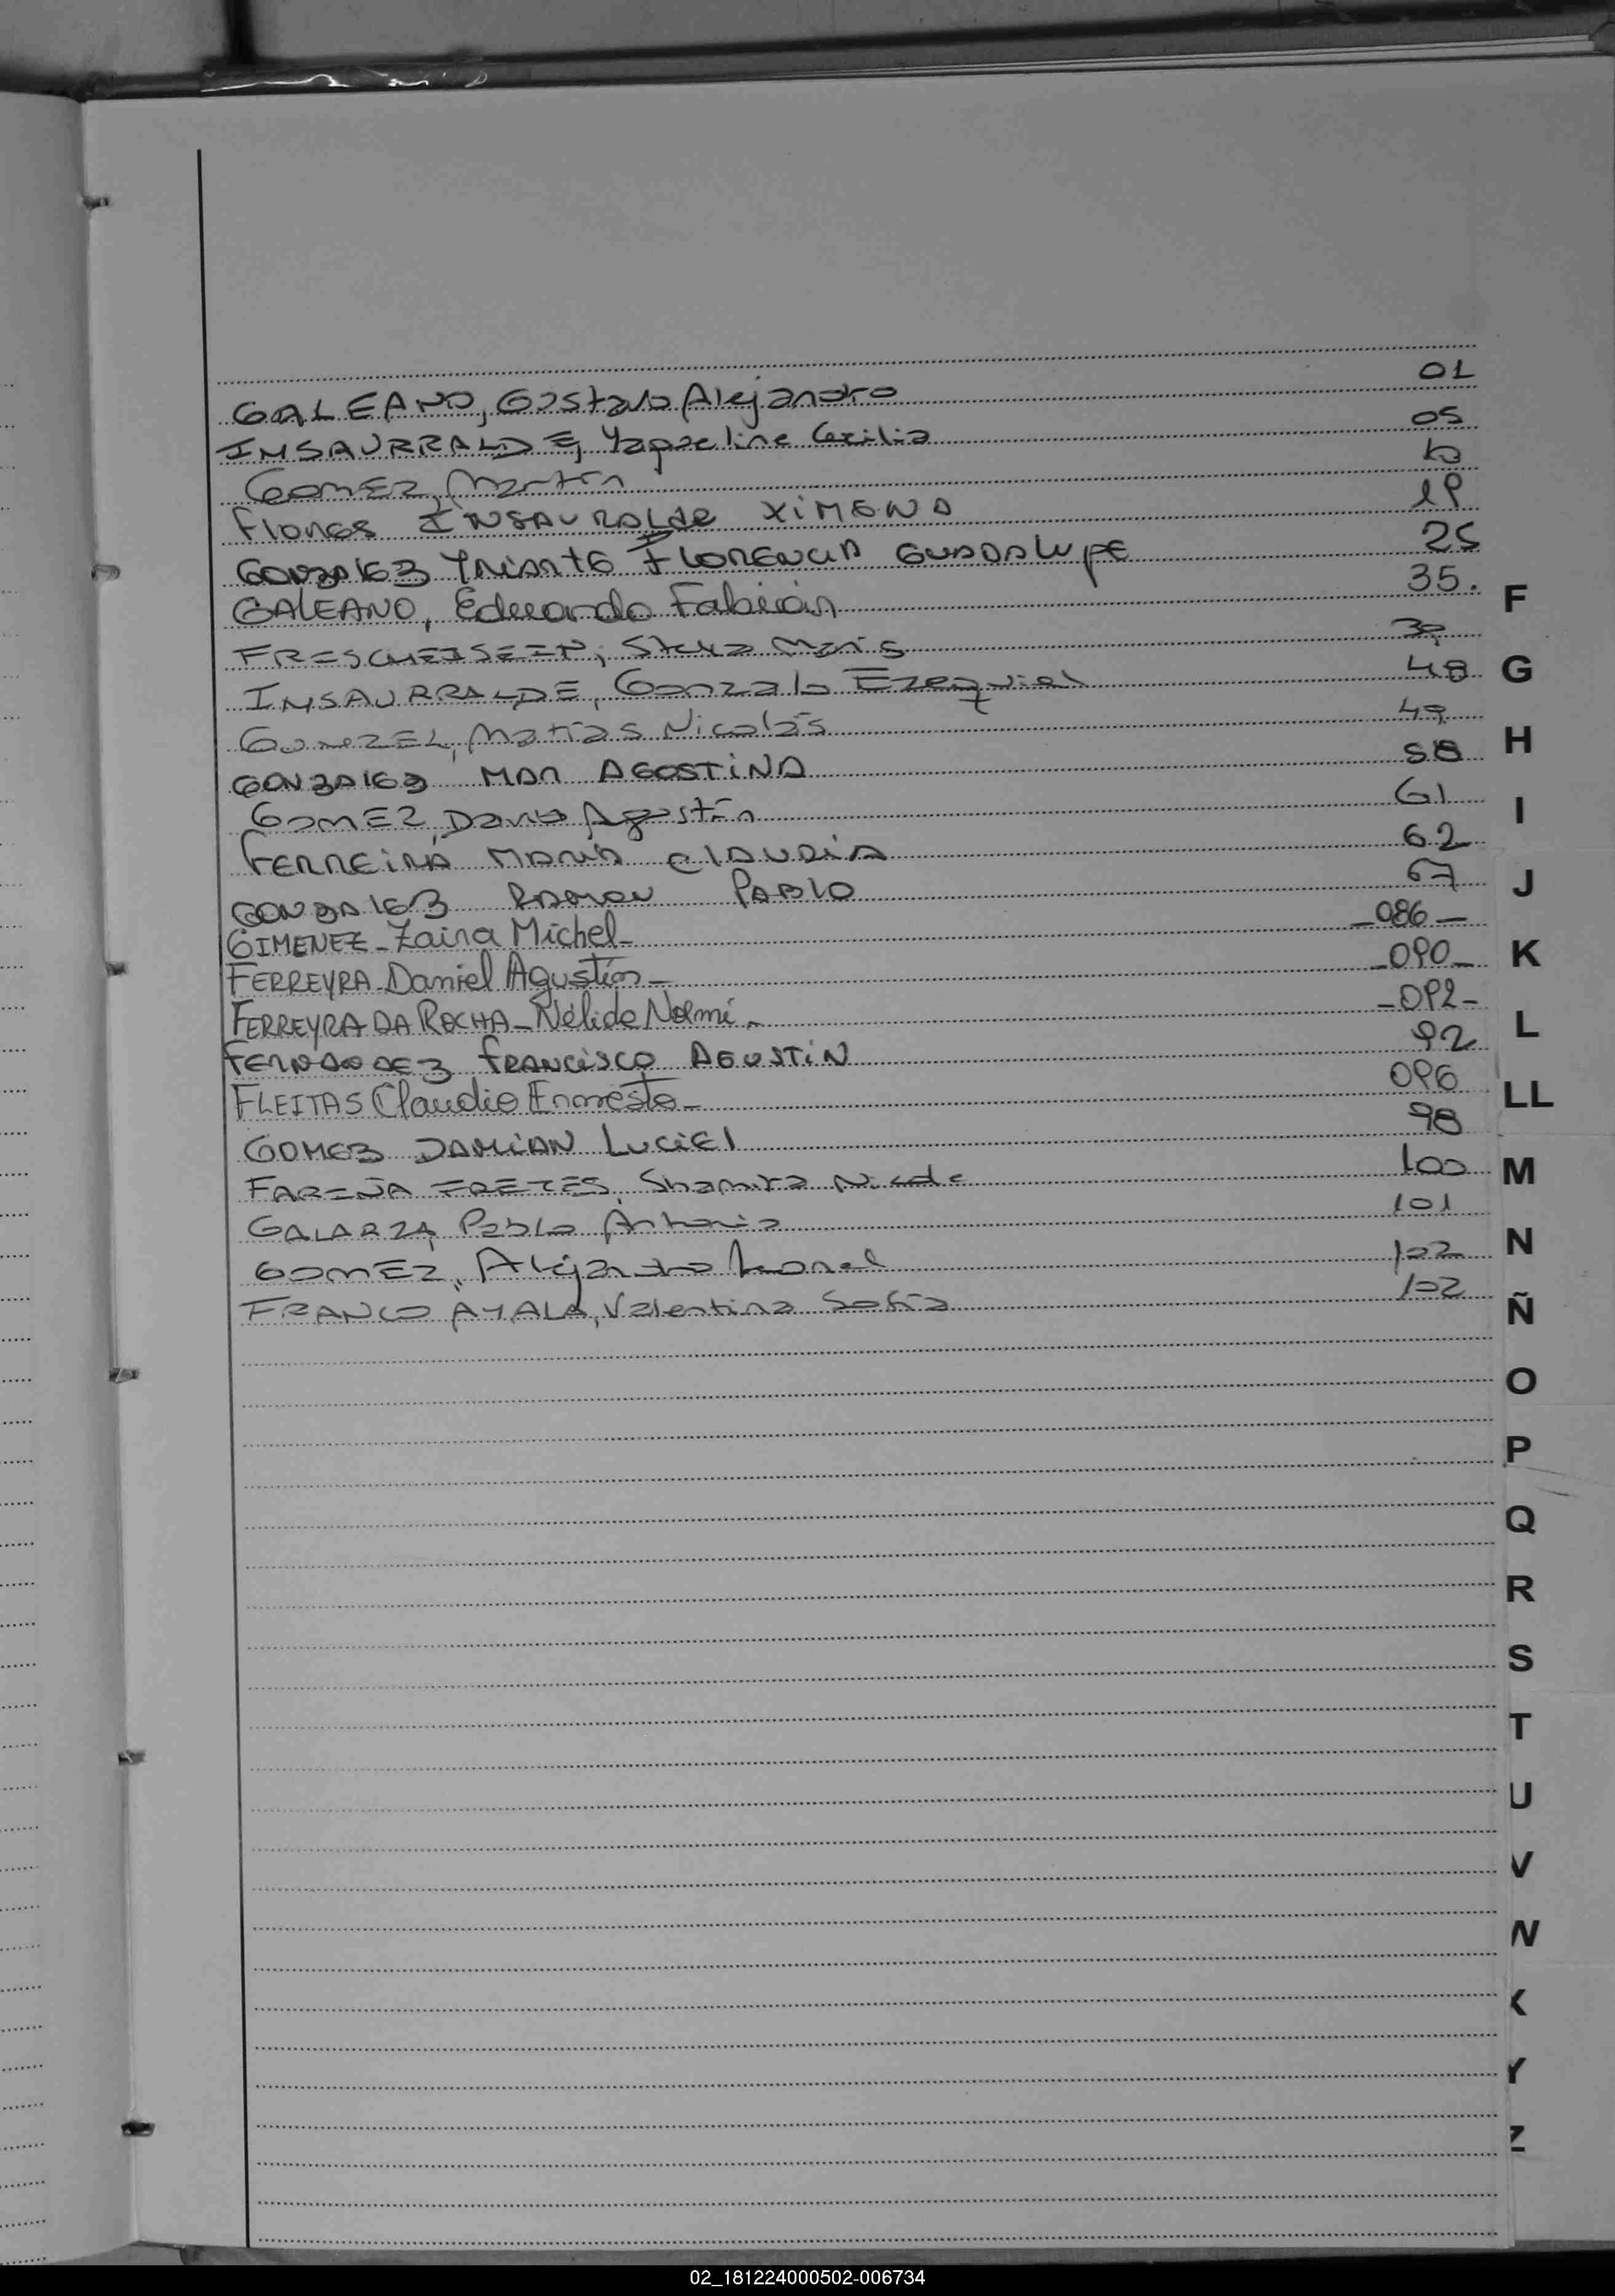 GALEANO, Gustavo Alejandro 01
INSAURRALDE, Yaqueline Cecilia 05
GOMEZ, Martín 10
Flores INSAURRALDE XIMENA 19
GONZALEZ YRIARTE FLORENCIA GUADALUPE 25
GALEANO, Eduardo Fabián 35.
Stella Maris 39
INSAURRALDE, Gonzalo Ezequiel 48
Matías Nicolás 49
GONZALEZ MAR AGOSTINA 58
GOMEZ, David Agustín 61
FERREIRA MARIA CLAUDIA 62
GONZALEZ RAMON PABLO 67
GIMENEZ - Zaira Michel - 086 -
FERREYRA - Daniel Agustín - 090 -
FERREYRA DA ROCHA - Nélida Noemí - 092 -
FERNANDEZ FRANCISCO AGUSTIN 92
FLEITAS Claudio Ernesto - 096
GOMEZ DAMIAN LUCIEL 98
FARIÑA FRETES, Shamira Nicole 100
GALARZA, Pablo Antonio 101
GOMEZ, Alejandro Leonel 102
FRANCO AYALA, Valentina Sofía 102
F
G
H
I
J
K
L
LL
M
N
Ñ
O
P
Q
R
S
T
U
V
W
X
Y
Z
02_181224000502-006734